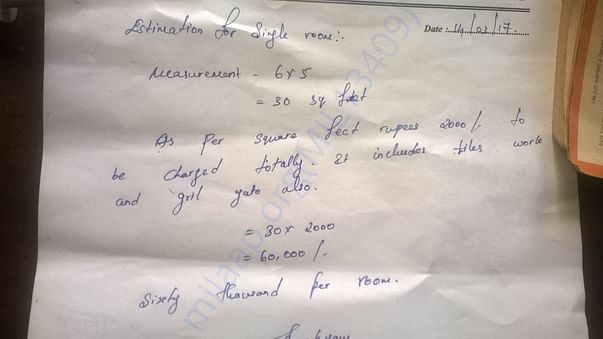 Estimation for Single room:-
Date : 14/03/17
Measurement - 6x5
= 30 sq feet
As per square feet rupees 2000/- to
be charged totally. It includes tiles work
and gril gate also.
= 30x 2000
= 60,000/-
Sixty thousand per room.
milaap.org